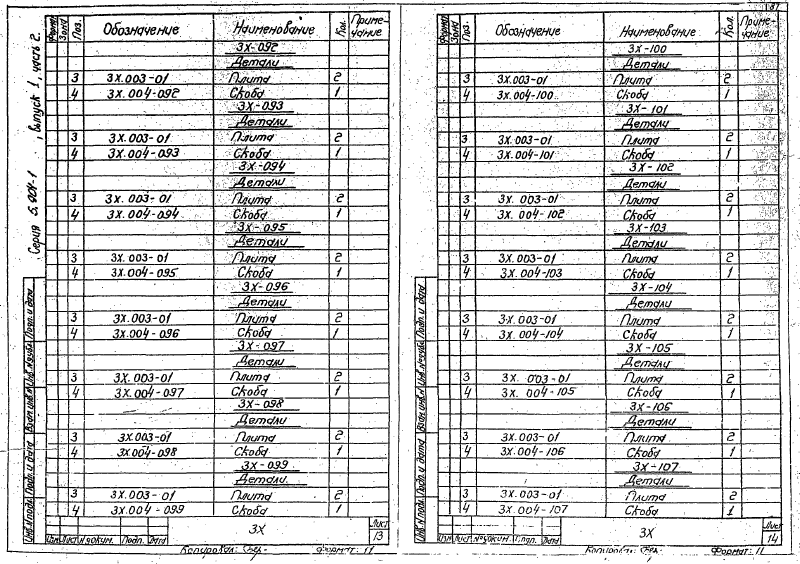 Серия 5.904-1 , выпуск 1, часть 2.
Формат Зона Поз. Обозначение Наименование Кол. Приме-чание
3Х-092
Детали
3 3Х.003-01 Плита 2
4 3Х.004-092 Скоба 1
3Х-093
Детали
3 3Х.003-01 Плита 2
4 3Х.004-093 Скоба 1
3Х-094
Детали
3 3Х.003-01 Плита 2
4 3Х.004-094 Скоба 1
3Х-095
Детали
3 3Х.003-01 Плита 2
4 3Х.004-095 Скоба 1
3Х-096
Детали
3 3Х.003-01 Плита 2
4 3Х.004-096 Скоба 1
3Х-097
Детали
3 3Х.003-01 Плита 2
4 3Х.004-097 Скоба 1
3Х-098
Детали
3 3Х.003-01 Плита 2
4 3Х.004-098 Скоба 1
3Х-099
Детали
3 3Х.003-01 Плита 2
4 3Х.004-099 Скоба 1
Инв.N подл. Подп. и дата Взам.инв.N Инв.N дубл. Подп. и дата
Изм. Лист N докум. Подп. Дата
3Х
Лист
13
Копировал: Формат: 11
Формат Зона Поз. Обозначение Наименование Кол. Приме-чание
3Х-100
Детали
3 3Х.003-01 Плита 2
4 3Х.004-100 Скоба 1
3Х-101
Детали
3 3Х.003-01 Плита 2
4 3Х.004-101 Скоба 1
3Х-102
Детали
3 3Х.003-01 Плита 2
4 3Х.004-102 Скоба 1
3Х-103
Детали
3 3Х.003-01 Плита 2
4 3Х.004-103 Скоба 1
3Х-104
Детали
3 3Х.003-01 Плита 2
4 3Х.004-104 Скоба 1
3Х-105
Детали
3 3Х.003-01 Плита 2
4 3Х.004-105 Скоба 1
3Х-106
Детали
3 3Х.003-01 Плита 2
4 3Х.004-106 Скоба 1
3Х-107
Детали
3 3Х.003-01 Плита 2
4 3Х.004-107 Скоба 1
Инв.N подл. Подп. и дата Взам.инв.N Инв.N дубл. Подп. и дата
Изм. Лист N докум. Подп. Дата
3Х
Лист
14
Копировал: Формат: 11